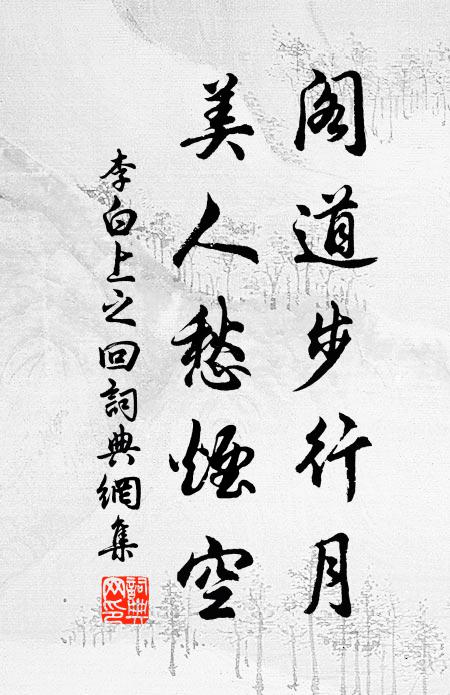 閣道步行月
美人愁煙空
李白上之回詞典網集
詞典